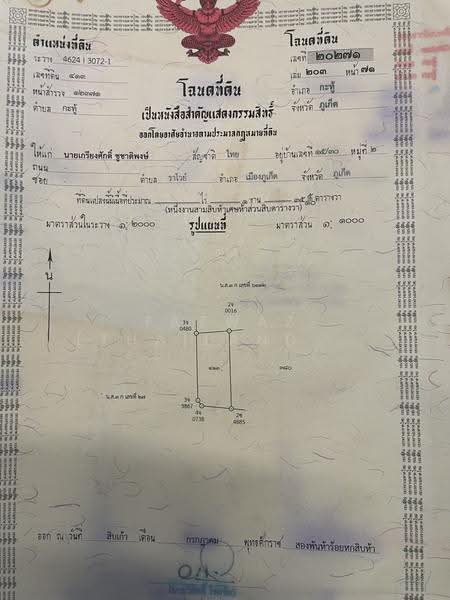 ตำแหน่งที่ดิน
ระวาง 4624 I 3072-1
เลขที่ดิน ๔๑๓
หน้าสำรวจ ๑๒๓๗๑
ตำบล กะทู้
โฉนดที่ดิน
เลขที่ ๒๐๒๗๑
เล่ม ๒๐๓ หน้า ๗๑
อำเภอ กะทู้
จังหวัด ภูเก็ต
โฉนดที่ดิน
เป็นหนังสือสำคัญแสดงกรรมสิทธิ์
ออกโดยอาศัยอำนาจตามประมวลกฎหมายที่ดิน
ให้แก่ นายเกรียงศักดิ์ ชูชาติพงษ์ สัญชาติ ไทย อยู่บ้านเลขที่ ๑๕/๓๐ หมู่ที่ ๒
ถนน
ซอย ตำบล ราไวย์ อำเภอ เมืองภูเก็ต จังหวัด ภูเก็ต
ที่ดินแปลงนี้มีเนื้อที่ประมาณ ไร่ ๑ งาน ตารางวา
(หนึ่งงานสามสิบห้าเศษห้าส่วนสิบตารางวา)
มาตราส่วนในระวาง ๑: ๒๐๐๐ รูปแผนที่ มาตราส่วน ๑: ๑๐๐๐
น
น.ส.๓ ก เลขที่
0016
0480
๔๑๓
๓๘๐
น.ส.๓ ก เลขที่
3867
0738
4885
ออก ณ วันที่ สิบเก้า เดือน กรกฎาคม พุทธศักราช สองพันห้าร้อยหกสิบห้า